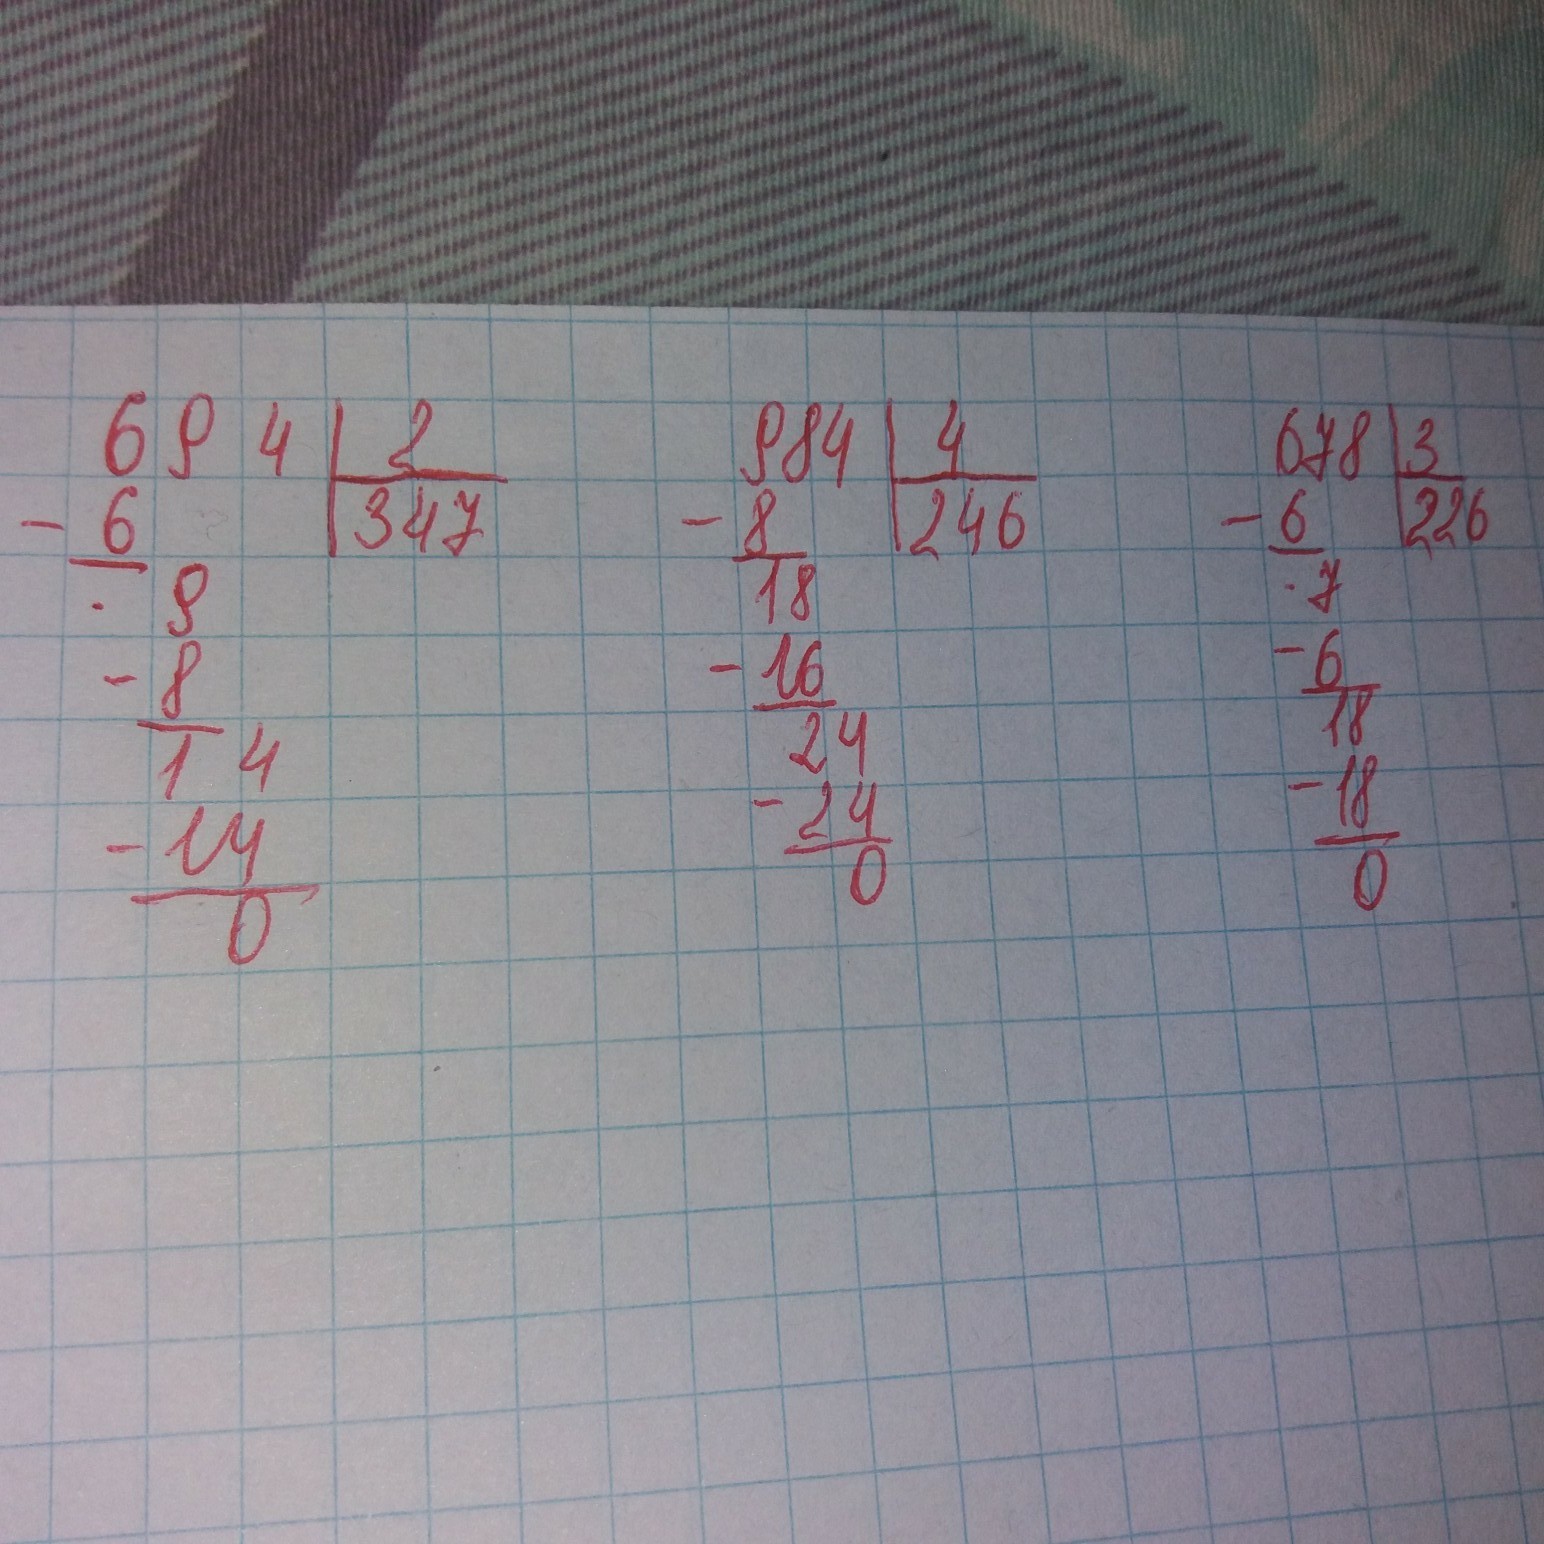 694 2
- 6 347
· 9
- 8
14
- 14
0
984 4
- 8 246
18
- 16
24
- 24
0
678 3
- 6 226
· 7
- 6
18
- 18
0